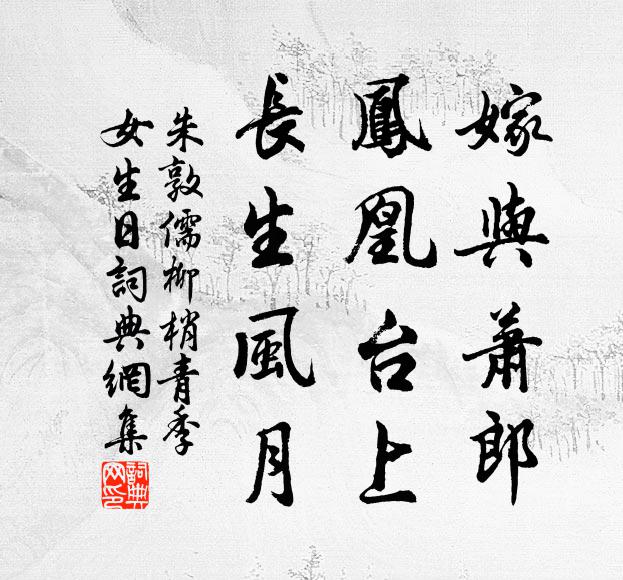 嫁與蕭郎
鳳凰台上
長生風月
朱敦儒柳梢青季
女生日詞典網集
詞典網印